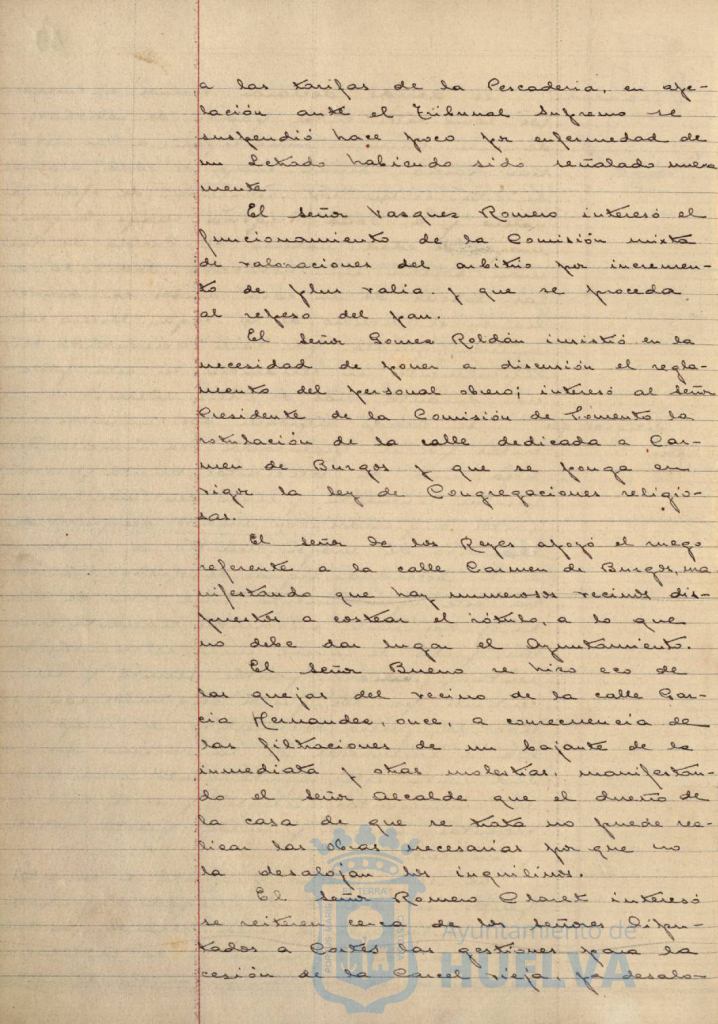 a las tarifas de la Pescaderia, en ape-
lación ante el Tribunal Supremo se
suspendió hace poco por enfermedad de
un Letrado habiendo sido señalado nueva
mente
El señor Vasquez Romero interesó el
funcionamiento de la Comisión mixta
de valoraciones del arbitrio por incremen-
to de plus valia. y que se proceda
al repeso del pan.
El señor Gomez Roldán insistió en la
necesidad de poner a discusión el regla-
mento del personal obrero; interesó al señor
Presidente de la Comisión de Fomento la
rotulación de la calle dedicada a Car-
men de Burgos y que se ponga en
vigor la ley de Congregaciones religio-
sas.
El señor de los Reyes apoyó el ruego
referente a la calle Carmen de Burgos, ma
nifestando que hay numerosos vecinos dis-
puestos a costear el rótulo, a lo que
no debe dar lugar el Ayuntamiento.
El señor Bueno se hizo eco de
las quejas del vecino de la calle Gar-
cia Hernandez, once, a consecuencia de
las filtraciones de un bajante de la
inmediata y otras molestias, manifestan-
do el señor Alcalde que el dueño de
la casa de que se trata no puede rea-
lizar las obras necesarias por que no
la desalojan los inquilinos.
El señor Romero Claret interesó
se reiteren cerca de los señores Dipu-
tados a Cortes las gestiones para la
cesión de la Carcel vieja, ya desalo-
Ayuntamiento de
HUELVA